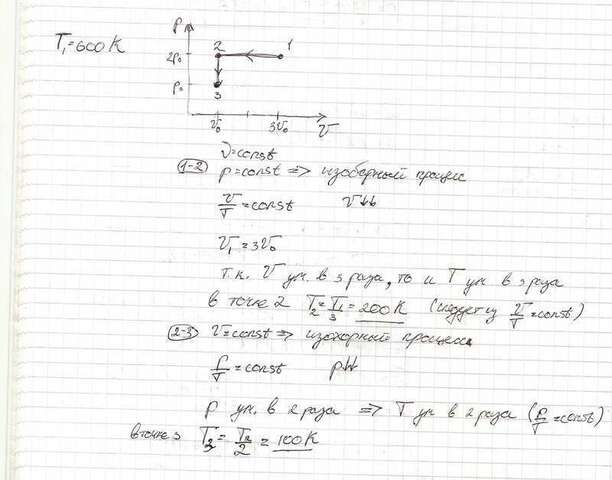 T₁=600K
P
2P₀
P₀
2
1
3
V₀
3V₀
V
ν=const
1-2 p=const => изобарный процес
V/T=const V↓↓
V₁=3V₀
т.к. V ум. в 3 раза, то и T ум в 3 раза
в точке 2 T₂=T₁/3=200K (следует из V/T=const)
2-3 V=const => изохорный процесс
P/T=const p↓↓
P ум. в 2 раза => T ум в 2 раза (P/T=const)
в точке 3 T₃=T₂/2=100K